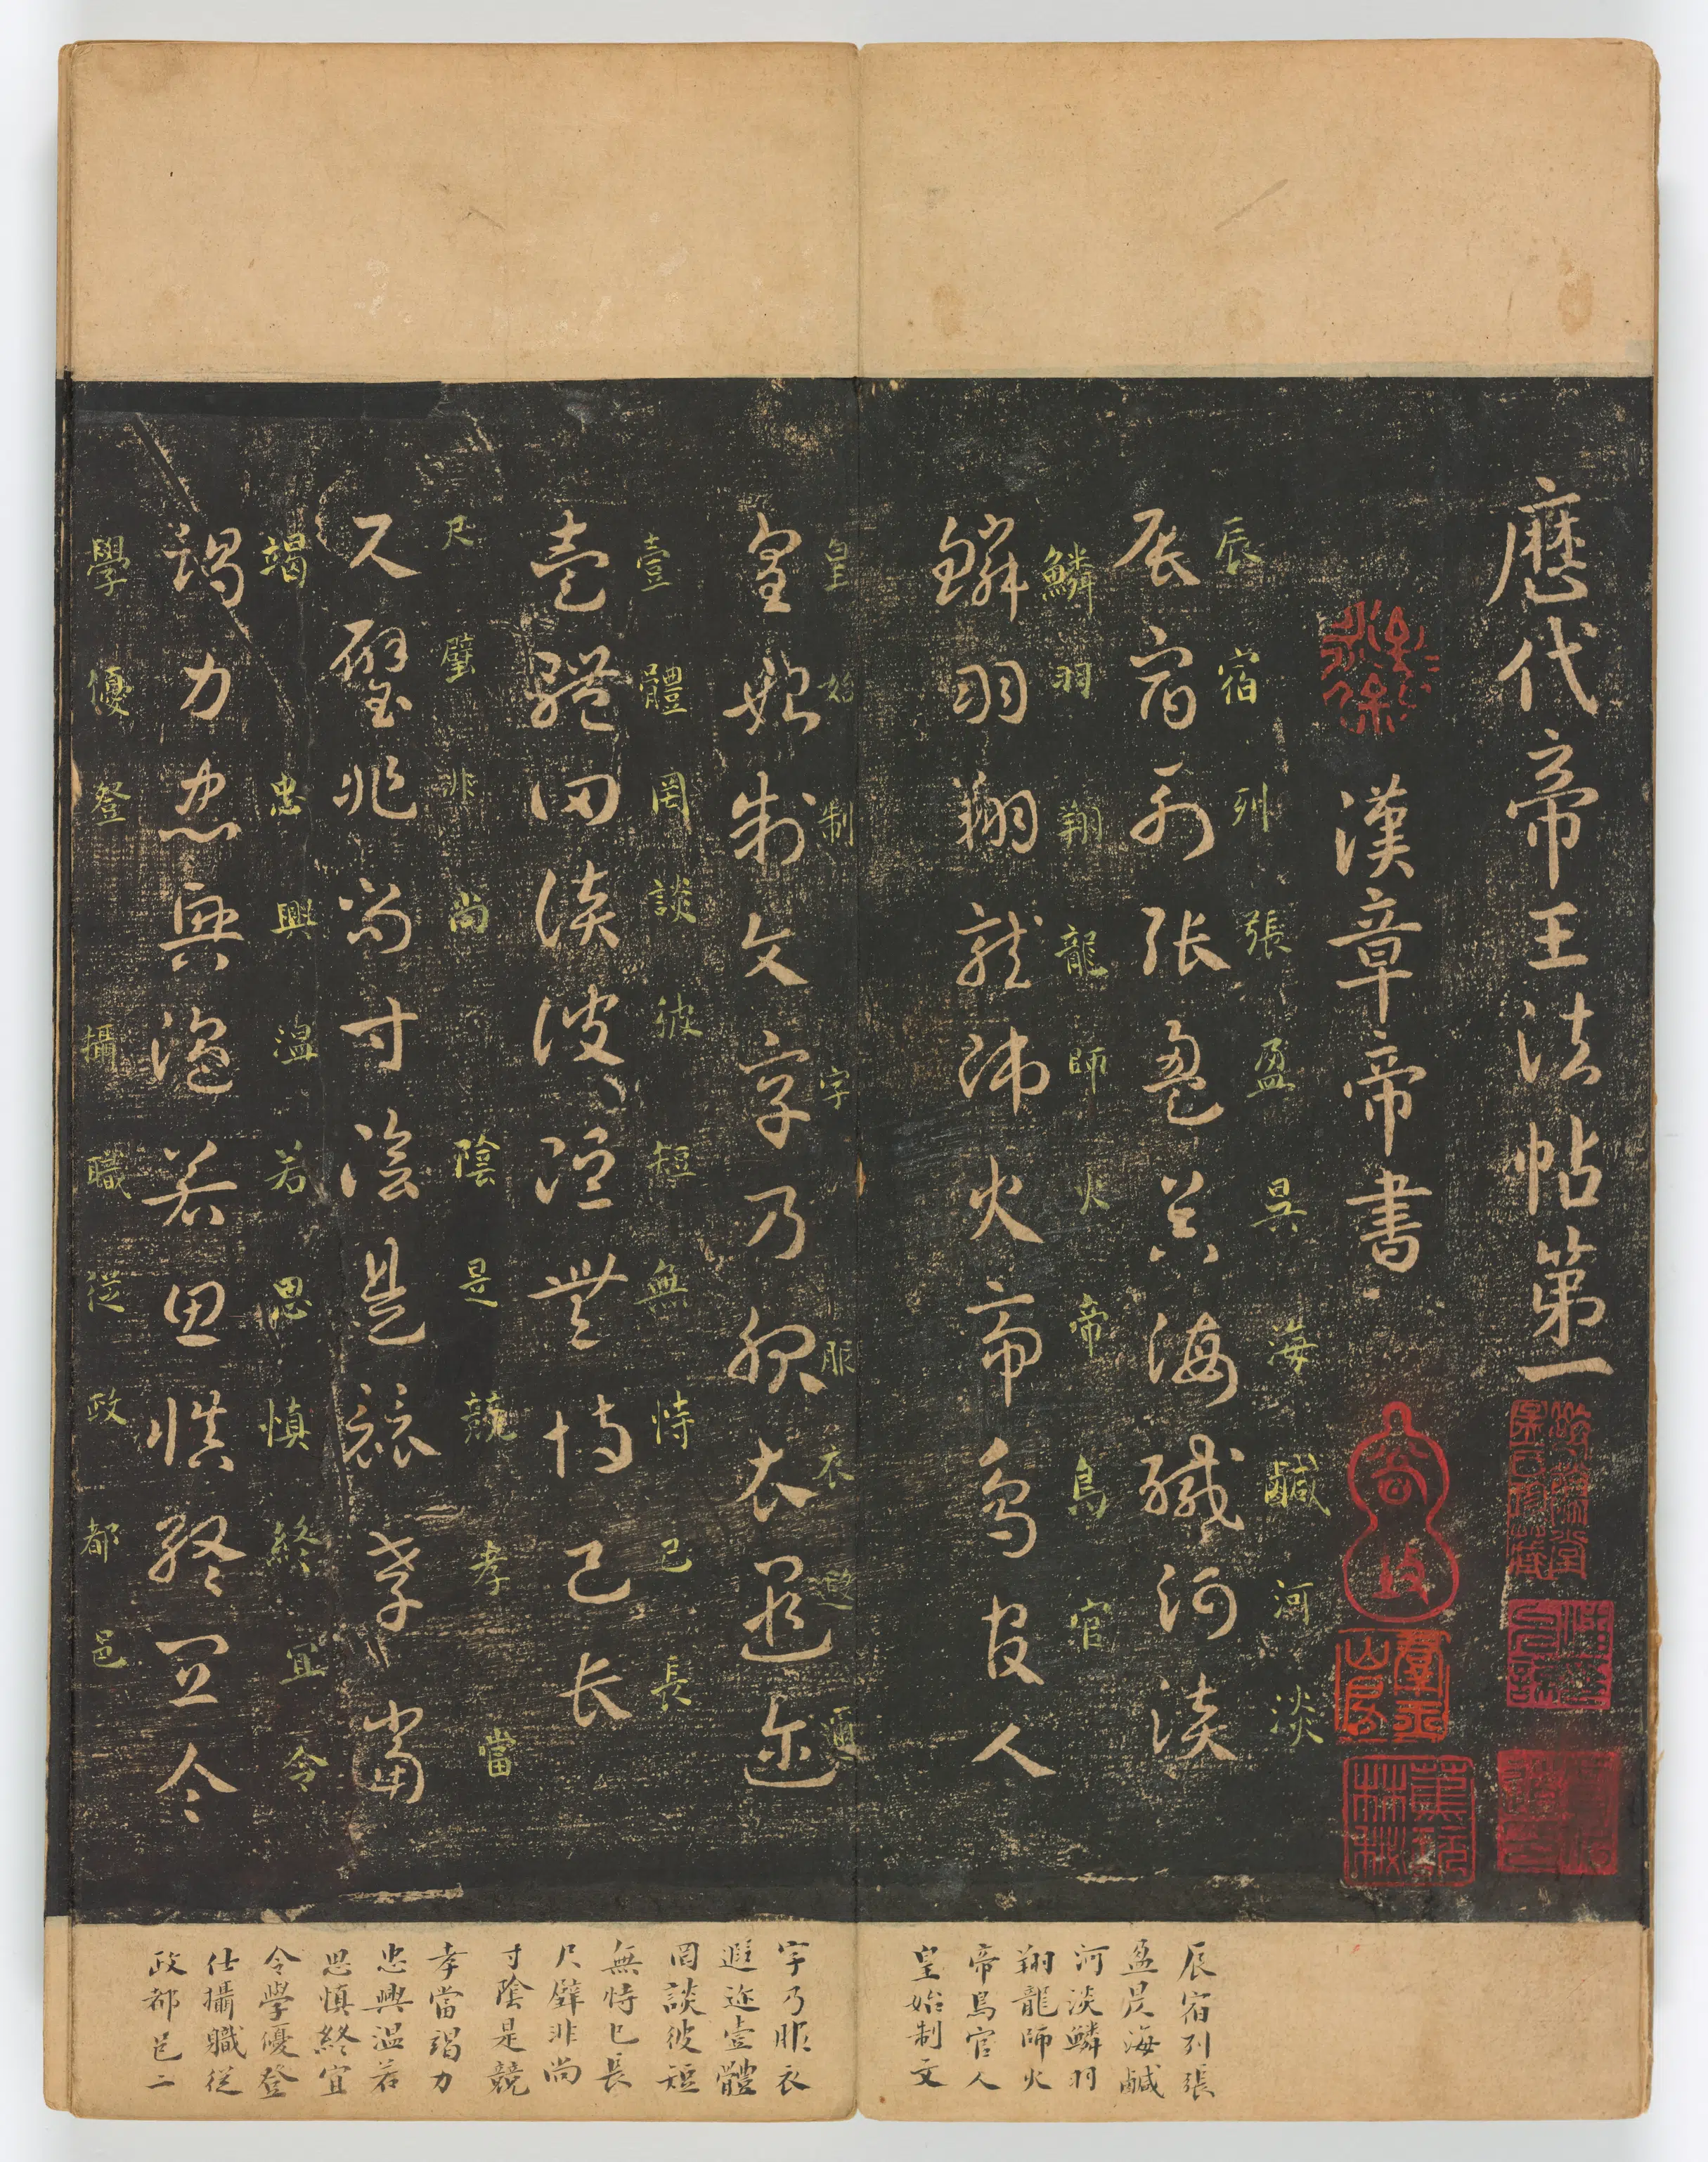 歷代帝王法帖第一
漢章帝書
辰宿列張盈昃海鹹河淡
辰宿列張盈昃海鹹河淡
鱗羽翔龍師火帝鳥官人
鱗羽翔龍師火帝鳥官
皇始制文字乃服衣遐邇
皇始制字服衣遐邇
壹體罔談彼短無恃己長
壹體罔談彼短無恃己長
尺璧非尚寸陰是競孝當
尺璧非尚陰是競孝當
竭力忠興溫若思慎終宜令
竭忠興溫若思慎終宜令
學優登攝職從政都邑
辰宿列張
盈昃海鹹
河淡鱗羽
翔龍師火
帝鳥官人
皇始制文
字乃服衣
遐迩壹體
罔談彼短
無恃已長
尺璧非尚
寸陰是競
孝當竭力
忠興溫若
思慎終宜
令學優登
仕攝職從
政都邑二